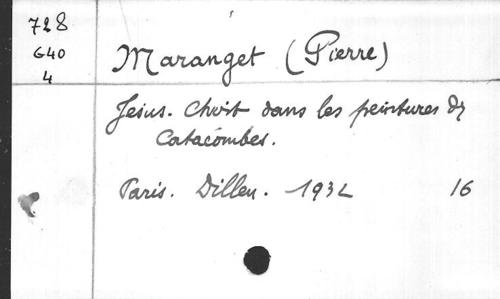 728
G40
4
Maranget (Pierre)
Jésus-Christ dans les peintures des
Catacombes.
Paris. Dillen. 1932 16